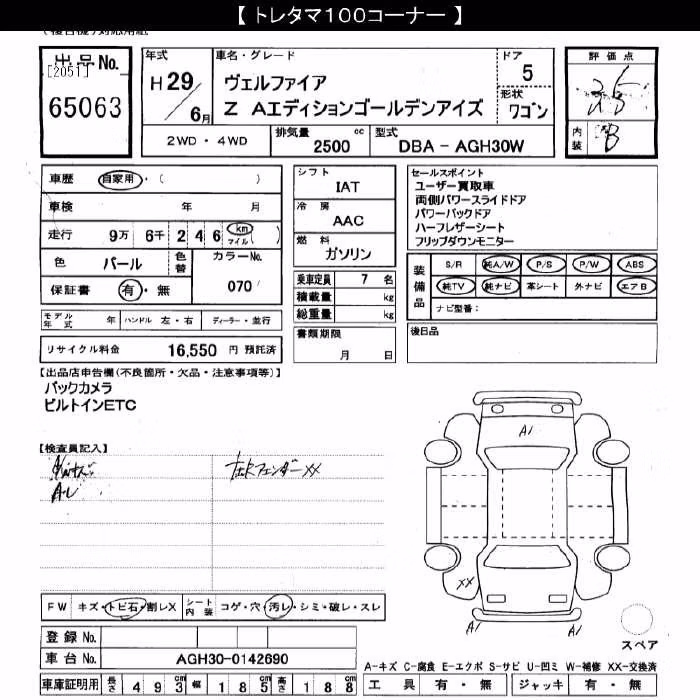 【 トレタマ100コーナー 】
出品No.
[2051]
65063
年式
H 29/6月
車名・グレード
ヴェルファイア
Z Aエディションゴールデンアイズ
ドア
5
形状
ワゴン
評価点
内装
B
2WD・4WD
排気量 2500 cc
型式 DBA - AGH30W
車歴 自家用・( )
車検 年 月
走行 9万 6千 2 4 6 km マイル ( )
色 パール
色替
カラーNo. 070
保証書 有・無
モデル年式 年 ハンドル 左・右 ディーラー・並行
リサイクル料金 16,550 円 預託済
シフト
IAT
冷房
AAC
燃料
ガソリン
乗車定員 7 名
積載量 kg
総重量 kg
書類期限
月 日
セールスポイント
ユーザー買取車
両側パワースライドドア
パワーバックドア
ハーフレザーシート
フリップダウンモニター
装備品
S/R 純A/W P/S P/W ABS
純TV 純ナビ 革シート 外ナビ エアB
ナビ型番:
後日品
【出品店申告欄(不良箇所・欠品・注意事項等)】
バックカメラ
ビルトインETC
【検査員記入】
フェンダーXX
A1
A1
XX
A1
A1
FW キズ・トビ石・割レX シート内装 コゲ・穴・汚レ・シミ・破レ・スレ
登録 No.
車台 No. AGH30-0142690
車庫証明用 長さ 4 9 3 cm 幅 1 8 5 cm 高さ 1 8 8 cm
スペア
A-キズ C-腐食 E-エクボ S-サビ U-凹ミ W-補修 XX-交換済
工具 有・無 ジャッキ 有・無